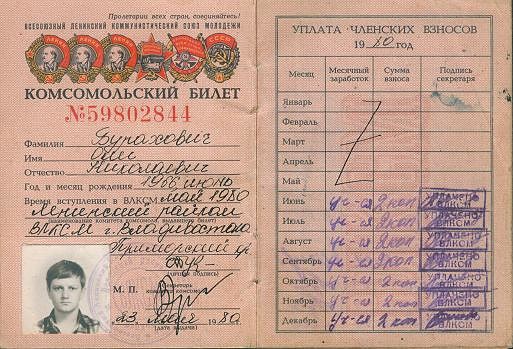 Пролетарии всех стран, соединяйтесь!
ВСЕСОЮЗНЫЙ ЛЕНИНСКИЙ КОММУНИСТИЧЕСКИЙ СОЮЗ МОЛОДЕЖИ
КОМСОМОЛЬСКИЙ БИЛЕТ
№59802844
Фамилия Бурахович
Имя Олег
Отчество Николаевич
Год и месяц рождения 1966 июнь
Время вступления в ВЛКСМ май 1980
Ленинский райком
наименование комитета комсомола, выдавшего билет
ВЛКСМ г. Владивостока
Приморский кр
(личная подпись)
Секретарь
комитета комсомола
М. П.
23 июня 1980
(дата выдачи)
УПЛАТА ЧЛЕНСКИХ ВЗНОСОВ
1980 год
Месяц Месячный заработок Сумма взноса Подпись секретаря
Январь
Февраль
Март
Апрель
Май
Июнь уч-ся 2 коп УПЛАЧЕНО ВЛКСМ
Июль уч-ся 2 коп УПЛАЧЕНО ВЛКСМ
Август уч-ся 2 коп УПЛАЧЕНО ВЛКСМ
Сентябрь уч-ся 2 коп УПЛАЧЕНО ВЛКСМ
Октябрь уч-ся 2 коп УПЛАЧЕНО ВЛКСМ
Ноябрь уч-ся 2 коп УПЛАЧЕНО ВЛКСМ
Декабрь уч-ся 2 коп УПЛАЧЕНО ВЛКСМ